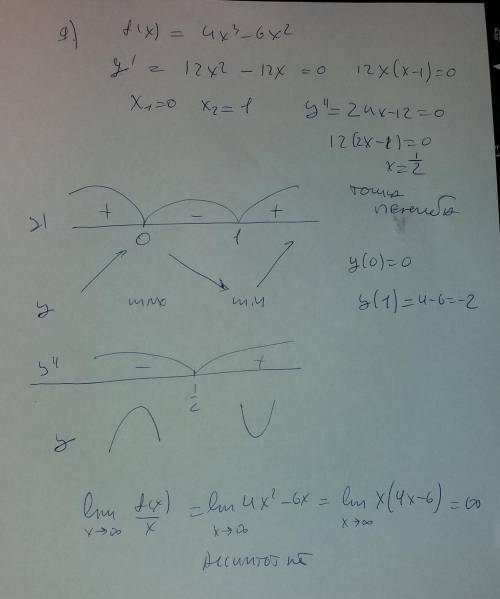 9) f(x) = 4x³-6x²
y' = 12x² - 12x = 0   12x(x-1)=0
x₁=0   x₂=1   y"=24x-12=0
12(2x-1)=0
x=1/2
точка
перегиба
y'   +   -   +
0   1
y(0)=0
y   max   min
y(1)=4-6=-2
y"   -   +
1/2
y
lim x→∞ f(x)/x = lim x→∞ 4x²-6x = lim x→∞ x(4x-6) = ∞
Ассимтот нет